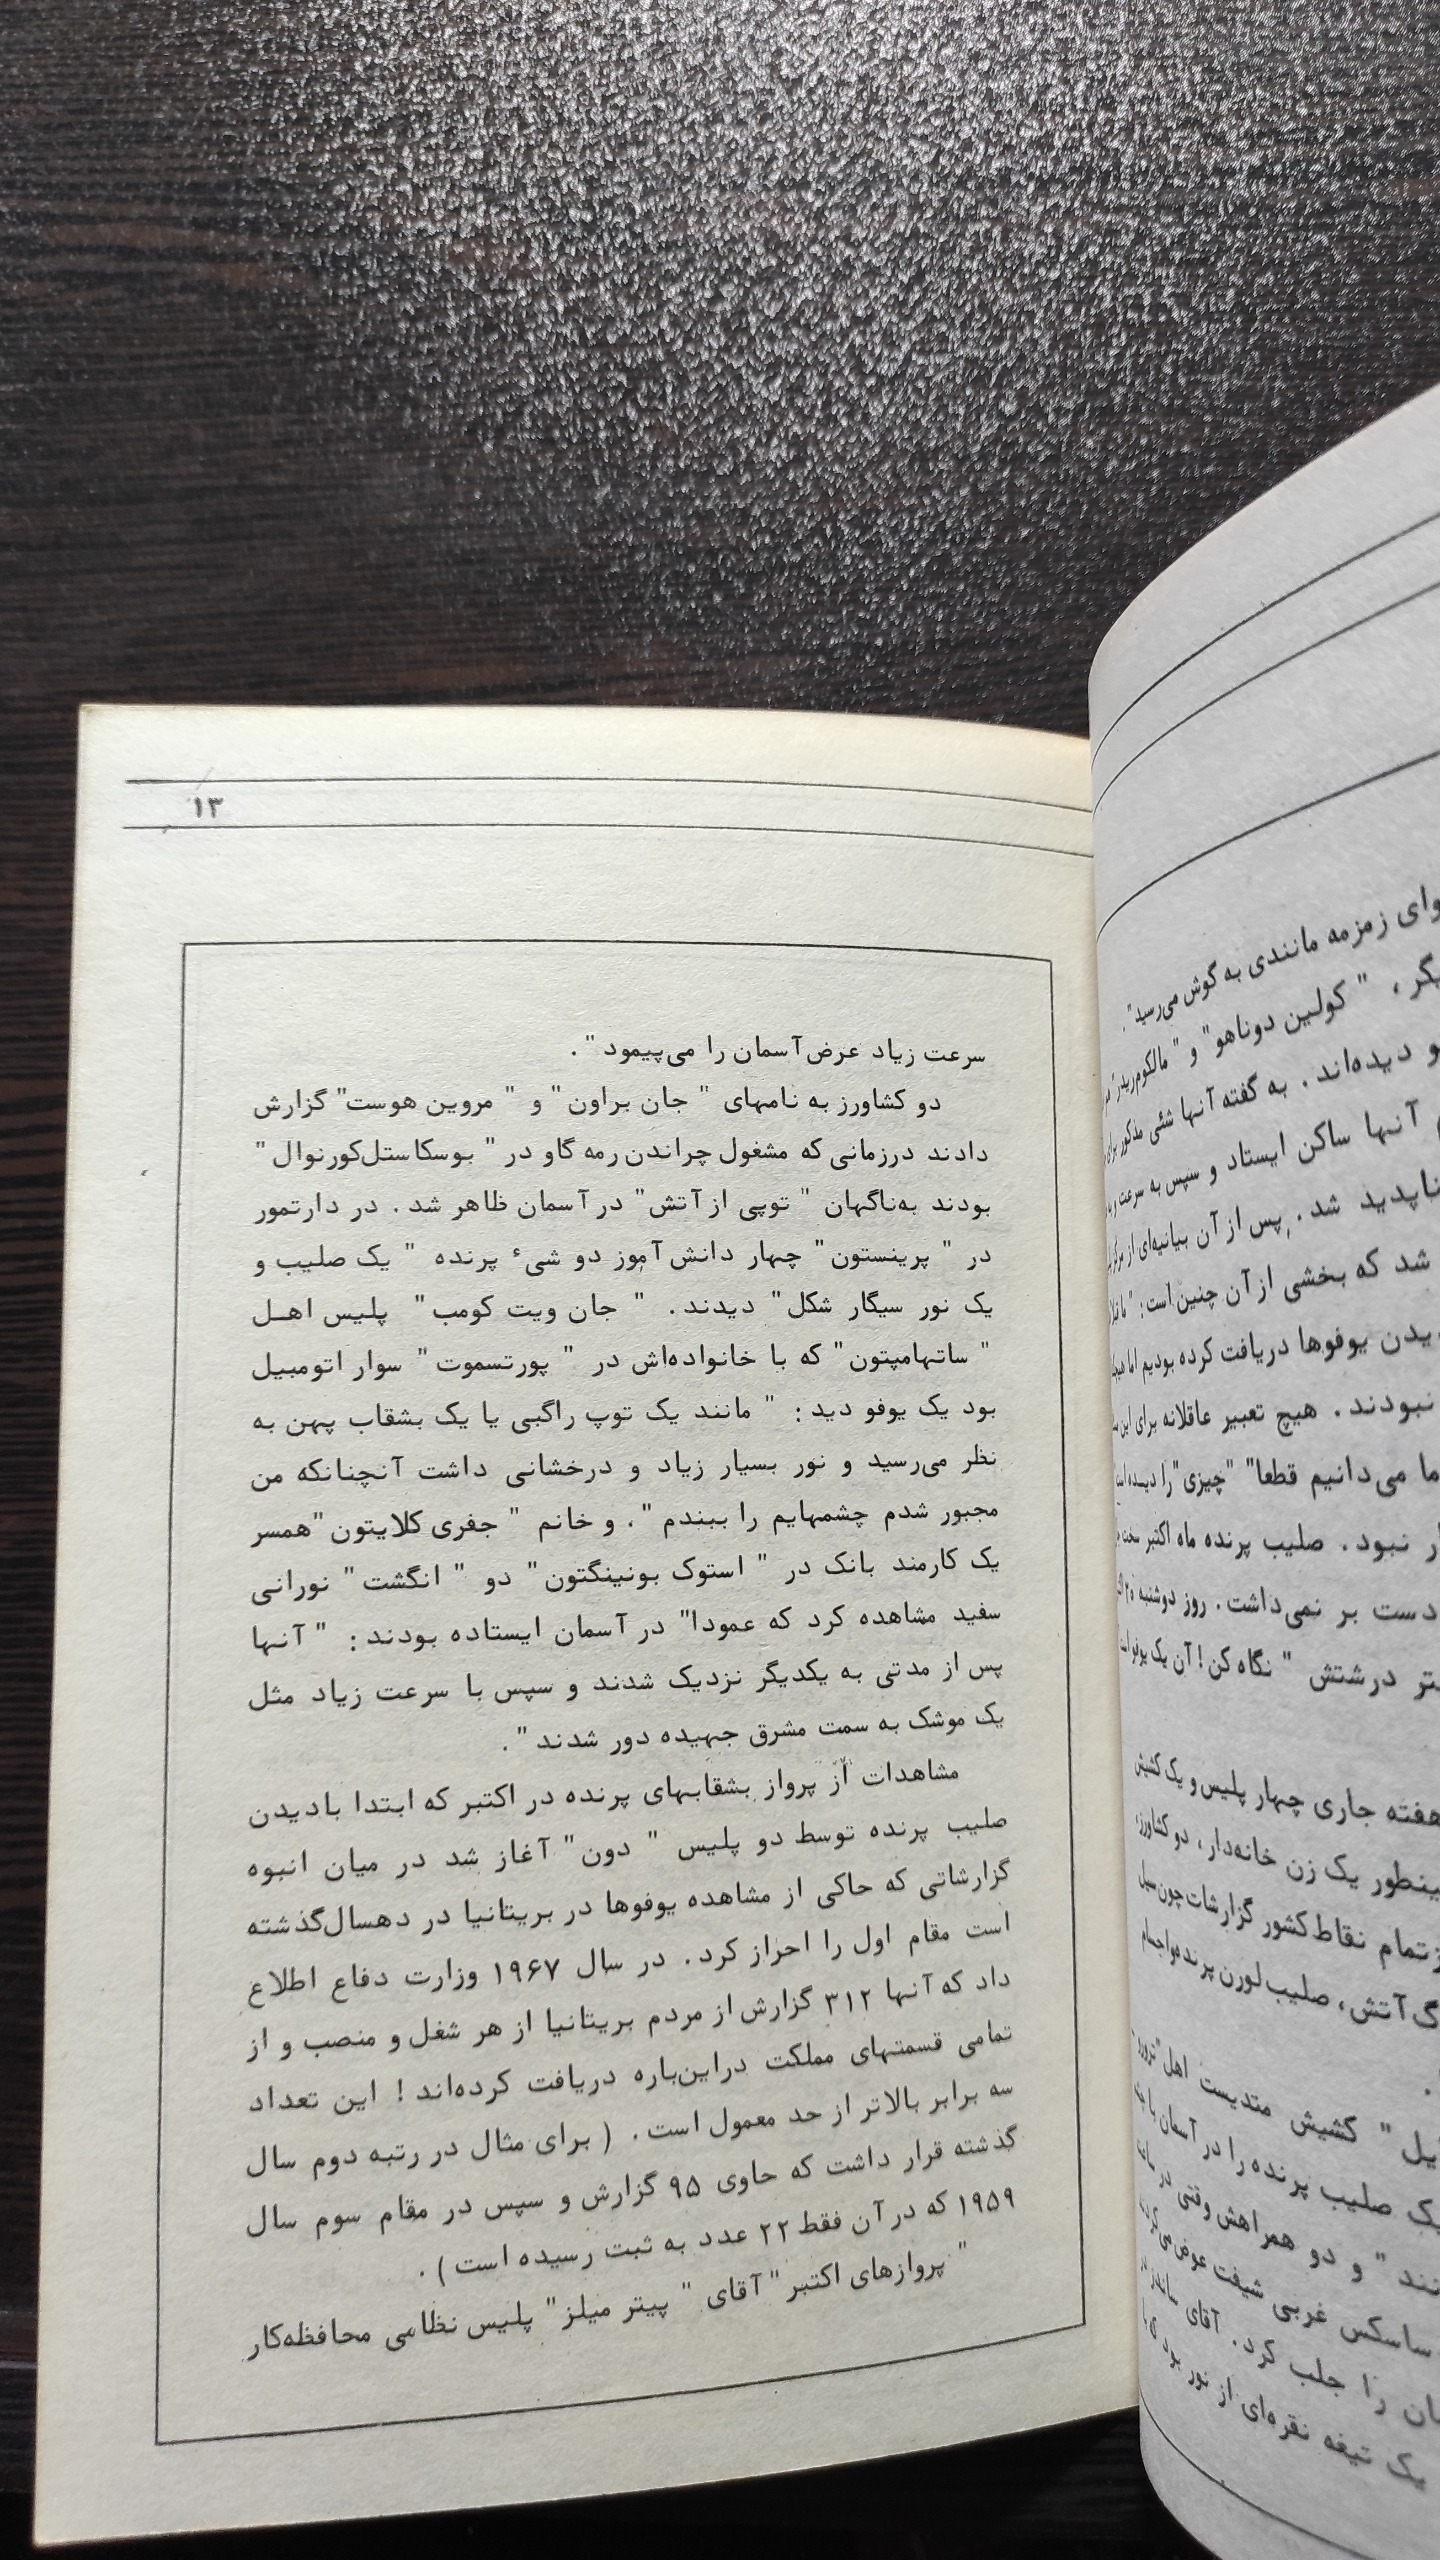 ۱۳
سرعت زیاد عرض آسمان را می‌پیمود " .
دو کشاورز به نامهای " جان براون" و " مروین هوست" گزارش
دادند درزمانی که مشغول چراندن رمه گاو در " بوسکاستل‌کورنوال "
بودند به‌ناگهان " توپی از آتش" در آسمان ظاهر شد . در دارتمور
در " پرینستون" چهار دانش آموز دو شیء پرنده " یک صلیب و
یک نور سیگار شکل" دیدند . " جان ویت کومب" پلیس اهل
" ساتهامپتون" که با خانواده‌اش در " پورتسموت" سوار اتومبیل
بود یک یوفو دید : " مانند یک توپ راگبی یا یک بشقاب پهن به
نظر می‌رسید و نور بسیار زیاد و درخشانی داشت آنچنانکه من
مجبور شدم چشمهایم را ببندم " . و خانم " جفری کلایتون "همسر
یک کارمند بانک در " استوک بونینگتون" دو " انگشت" نورانی
سفید مشاهده کرد که عمودا" در آسمان ایستاده بودند : " آنها
پس از مدتی به یکدیگر نزدیک شدند و سپس با سرعت زیاد مثل
یک موشک به سمت مشرق جهیده دور شدند " .
مشاهدات از پرواز بشقابهای پرنده در اکتبر که ابتدا بادیدن
صلیب پرنده توسط دو پلیس " دون" آغاز شد در میان انبوه
گزارشاتی که حاکی از مشاهده یوفوها در بریتانیا در دهسال‌گذشته
است مقام اول را احراز کرد . در سال ۱۹۶۷ وزارت دفاع اطلاع
داد که آنها ۳۱۲ گزارش از مردم بریتانیا از هر شغل و منصب و از
تمامی قسمتهای مملکت دراین‌باره دریافت کرده‌اند ! این تعداد
سه برابر بالاتر از حد معمول است . ( برای مثال در رتبه دوم سال
گذشته قرار داشت که حاوی ۹۵ گزارش و سپس در مقام سوم سال
۱۹۵۹ که در آن فقط ۲۲ عدد به ثبت رسیده است ) .
" پروازهای اکتبر" آقای " پیتر میلز" پلیس نظامی محافظه‌کار
وای زمزمه مانندی به گوش می‌رسید" .
، " کولین دوناهو" و " مالکوم
و دیده‌اند . به گفته آنها شئی مذکور
آنها ساکن ایستاد و سپس به سرعت
ناپدید شد . پس از آن بیانیه‌ای از مرکز
شد که بخشی از آن چنین است : "
یدن یوفوها دریافت کرده بودیم اما
نبودند . هیچ تعبیر عاقلانه برای این
ما می‌دانیم قطعا" "چیزی" را
ر نبود . صلیب پرنده ماه اکتبر سخت
دست بر نمی‌داشت . روز دوشنبه ۲۰
تر درشتش " نگاه کن ! آن یک یوفو
هفته جاری چهار پلیس و یک کشیش
ینطور یک زن خانه‌دار ، دو کشاورز
تمام نقاط کشور گزارشات چون سیل
گ آتش ، صلیب لورن پرنده واجسام
یل " کشیش متدیست اهل
ک صلیب پرنده را در آسمان
نند " و دو همراهش وقتی در
ساسکس غربی شیفت عوض می
ان را جلب کرد . آقای
یک تیغه نقره‌ای از نور بود